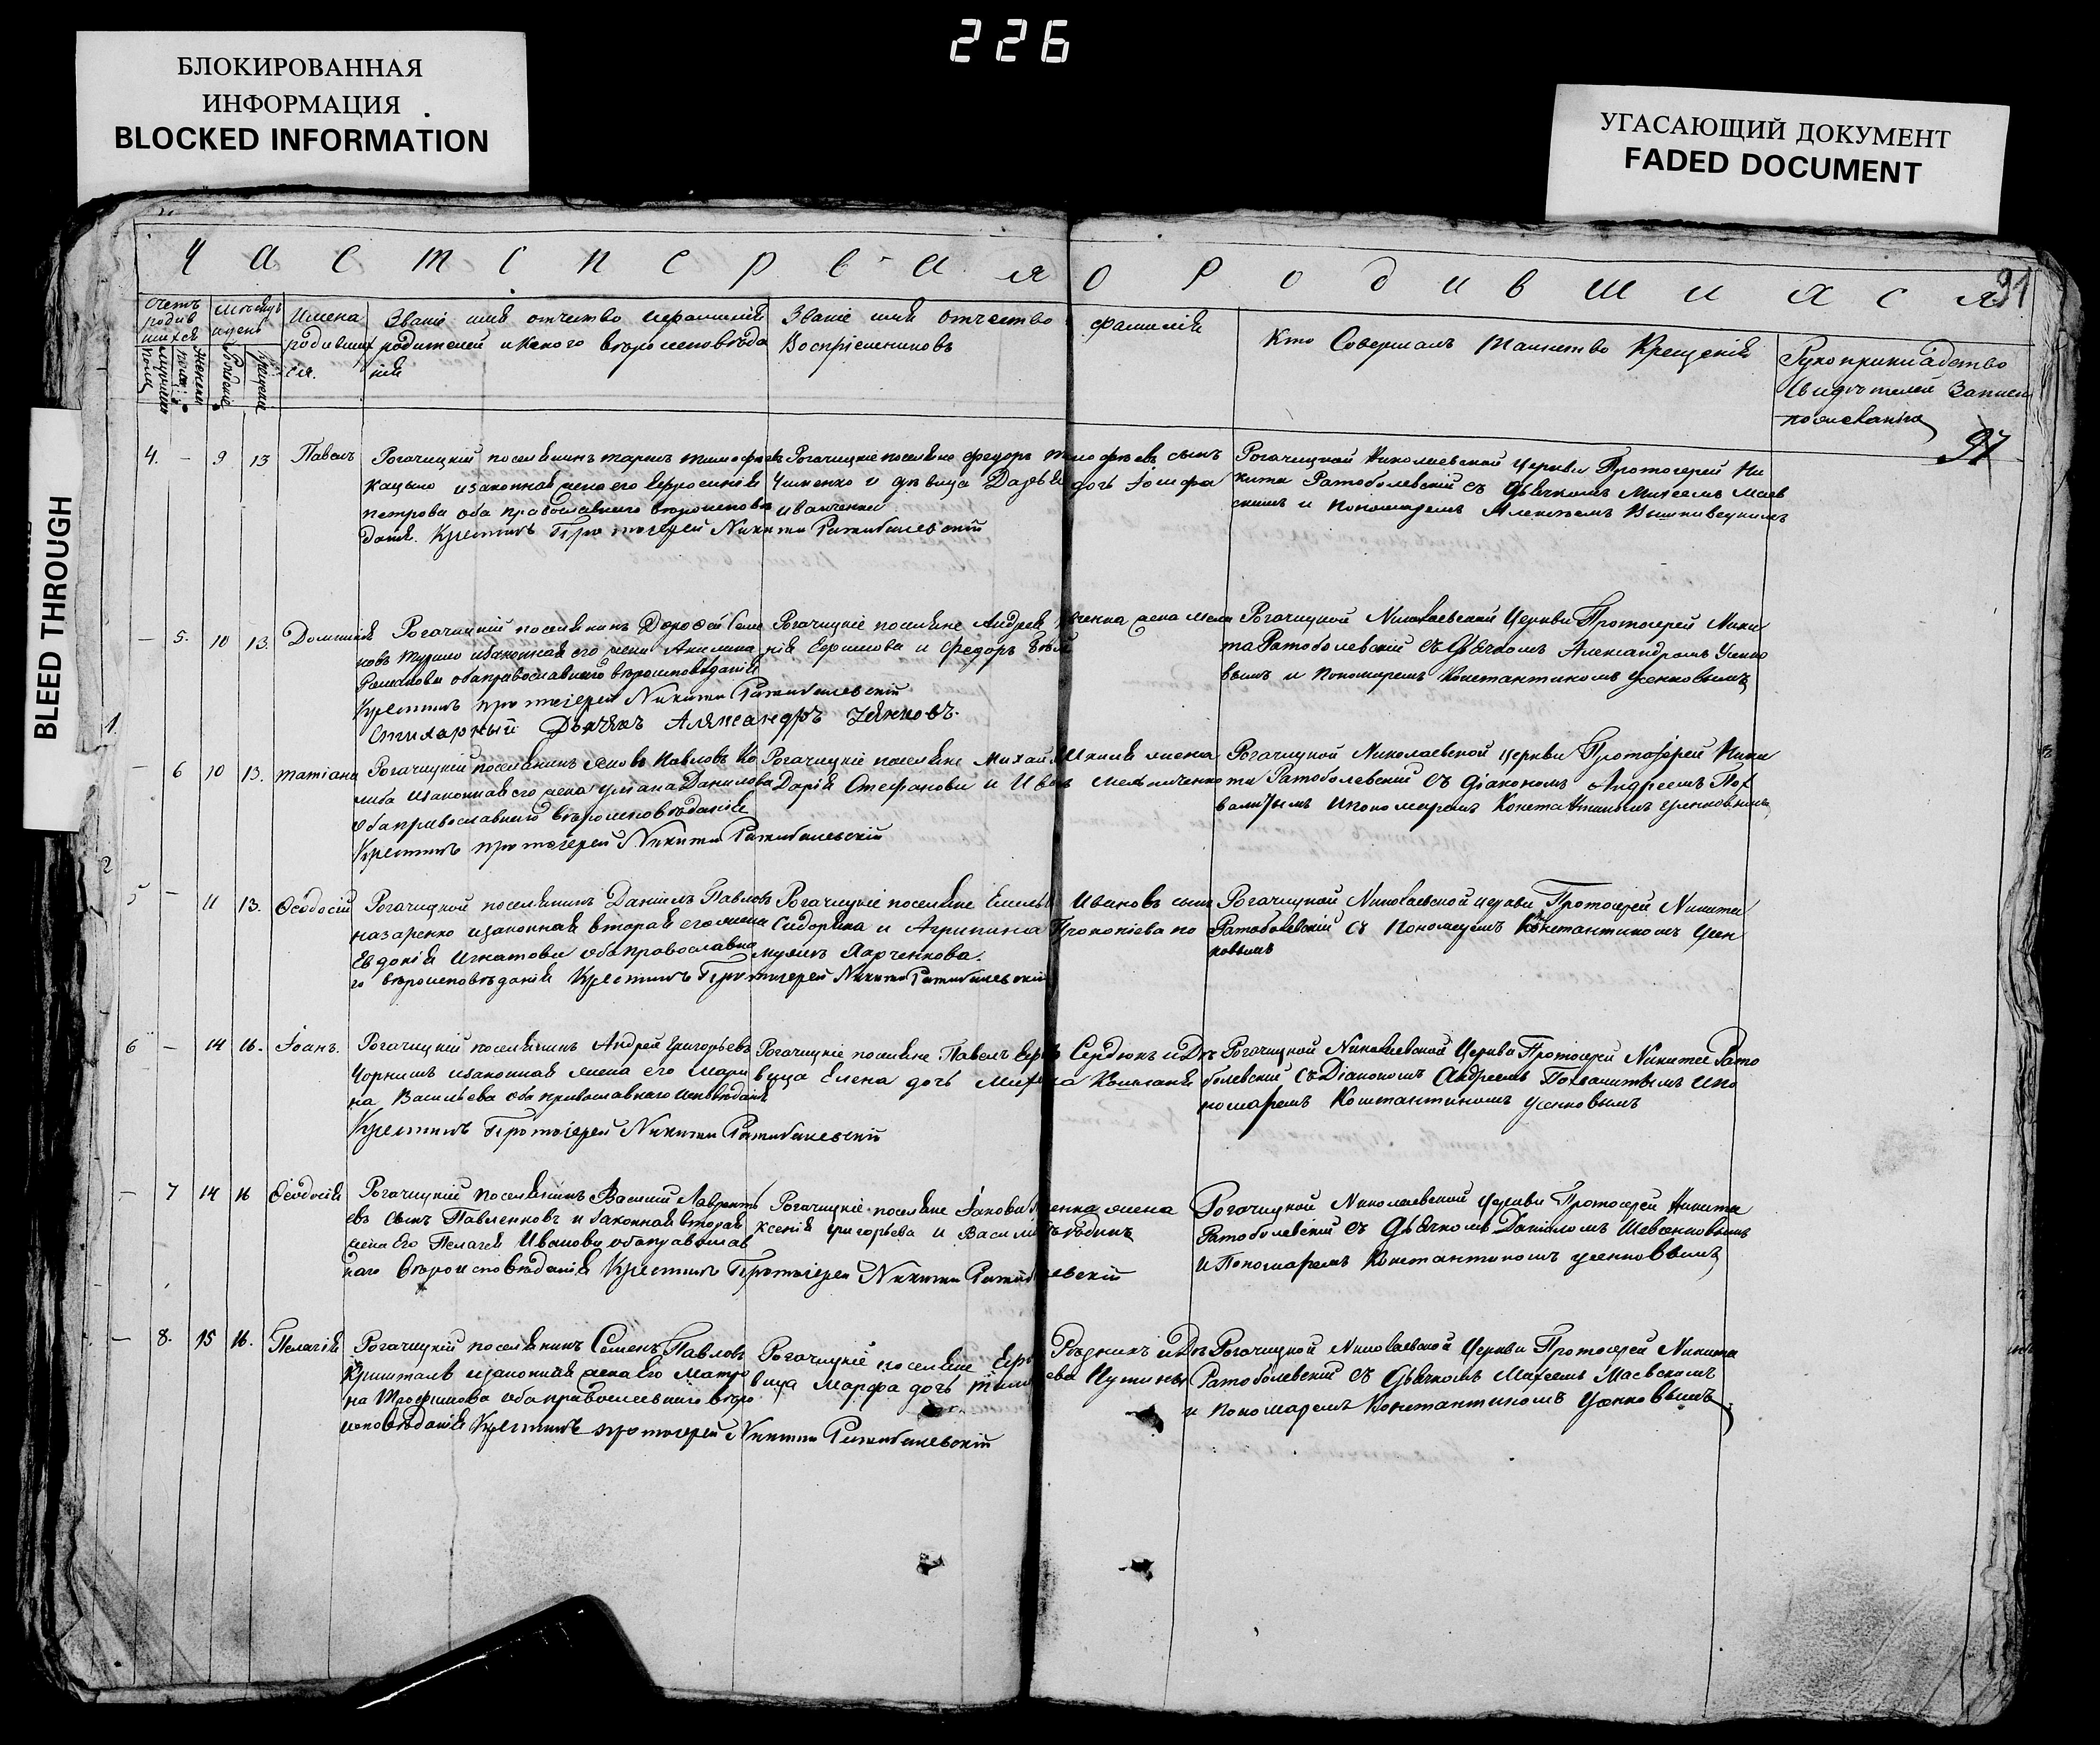 226
БЛОКИРОВАННАЯ
ИНФОРМАЦИЯ
BLOCKED INFORMATION
УГАСАЮЩИЙ ДОКУМЕНТ
FADED DOCUMENT
BLEED THROUGH
Часть первая о родившихся
91
Счетъ родившихся
мѣсяцъ и день
Имена родившихся.
Званіе имя отчество и фамилія
родителей и какого вѣроисповѣда
нія
Званіе имя отчество фамилія
Воспріемниковъ
Кто Совершалъ Таинство Крещенія
Рукоприкладство
Свидѣтелей Записи
по желанію
97
4. - 9 13 Павелъ
Рогачицкій поселянинъ Тарасъ Тимофеевъ
Кацыло и законная жена его Ефросинія
Петрова оба православнаго вѣроисповѣ
данія. Крестилъ Протоіерей Никита Ратиболевскій
Рогачицкіе поселяне Федоръ Тимофѣевъ сынъ
и дѣвица Дарья дочь Іосифа
Иванченка
Рогачицкой Николаевской Церкви Протоіерей Ни
кита Ратоболевскій съ Дьячкомъ Михеемъ Маев
скимъ и Пономаремъ Алексѣемъ Вышневецкимъ
- 5. 10 13. Домникія
Рогачицкій поселянинъ Дорофей
новъ и законная его жена Акилина
Романова оба православнаго вѣроисповѣданія
Крестилъ протоіерей Никита Ратиболевскій
Стихарный Дьячекъ Александръ Усенковъ.
Рогачицкіе поселяне Андрея жена Мела
нія Ефимова и Федоръ
Рогачицкой Николаевской Церкви Протоіерей Ники
та Ратоболевскій съ Дьячкомъ Александромъ Усенко
вымъ и Пономаремъ Константиномъ Усенковымъ
1.
- 6 10 13. Татіана
Рогачицкій поселянинъ Яковъ Павловъ Ко
и законная его жена Уліана Данилова
оба православнаго вѣроисповѣданія
Крестилъ протоіерей Никита Ратиболевскій
Рогачицкіе поселяне Михаила жена
Дарія Стефанова и Мельниченко
Рогачицкой Николаевской церкви Протоіерей Ники
та Ратоболевскій съ Діакономъ Андреемъ Пох
валитымъ и пономаремъ Константиномъ Усенковымъ
2
5 - 11 13. Ѳеодосій
Рогачицкой поселянинъ Даніилъ Павловъ
Назаренко и законная вторая его жена
Евдокія Игнатова оба православна
го вѣроисповѣданія Крестилъ Протоіерей Никита Ратиболевскій
Рогачицкіе поселяне Ивановъ сынъ
Сидоряка и Агрипина Прокопіева по
мужѣ Харченкова.
Рогачицкой Николаевской церкви Протоіерей Никита
Ратоболевскій съ Пономаремъ Константиномъ Усен
ковымъ
6 - 14 16. Іоанъ.
Рогачицкій поселянинъ Андрей Григорьевъ
Чорнышъ и законная жена его Мари
на Васильева оба православнаго исповѣданія
Крестилъ Протоіерей Никита Ратиболевскій
Рогачицкіе поселяне Павелъ Сердюкъ и Дѣ
вица Елена дочь
Рогачицкой Николаевской Церкви Протоіерей Никита Рато
болевскій съ Діакономъ Андреемъ Похвалитымъ и по
номаремъ Константиномъ Усенковымъ
- 7 14 16 Ѳеодосія
Рогачицкій поселянинъ Василій Лаврентъ
евъ сынъ Павленковъ и законная вторая
жена его Пелагея Иванова оба православ
наго вѣроисповѣданія Крестилъ Протоіерей Никита Ратиболевскій
Рогачицкіе поселяне Іакова жена
Ксенія Григорьева и Василій
Рогачицкой Николаевской Церкви Протоіерей Никита
Ратоболевскій съ Дьячкомъ Даніиломъ Шевченковымъ
и Пономаремъ Константиномъ Усенковымъ
- 8. 15 16. Пелагія
Рогачицкій поселянинъ Семенъ Павловъ
Кришталь и законная жена его Матро
на Трофимова оба православнаго вѣро
исповѣданія Крестилъ протоіерей Никита Ратиболевскій
Рогачицкіе поселяне Рѣзникъ и Дѣ
вица Марфа дочь
Рогачицкой Николаевской Церкви Протоіерей Никита
Ратоболевскій съ Дьячкомъ Михеемъ Маевскимъ
и Пономаремъ Константиномъ Усенковымъ